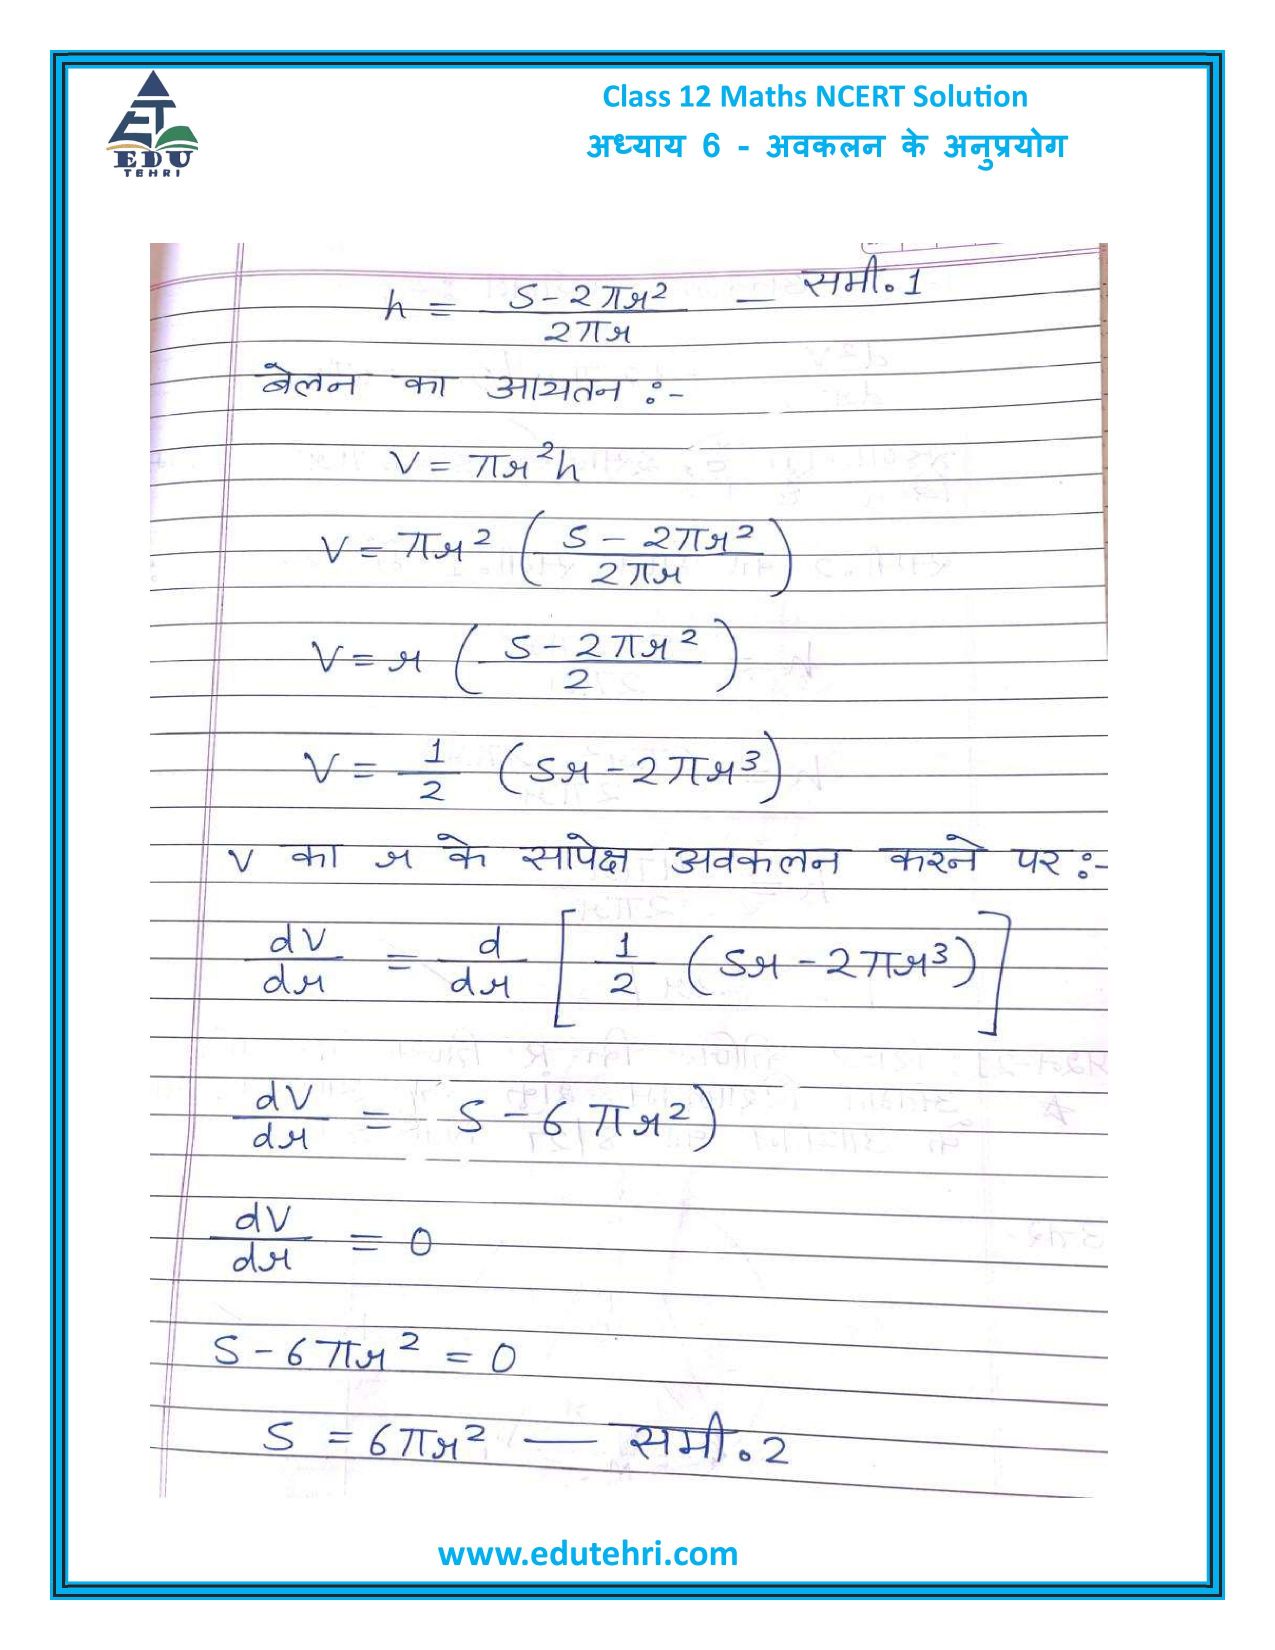 ET
EDU
TEHRI
Class 12 Maths NCERT Solution
अध्याय 6 - अवकलन के अनुप्रयोग
h = (S - 2πr²)/(2πr) — समी. 1
बेलन का आयतन :-
V = πr²h
V = πr² ( (S - 2πr²)/(2πr) )
V = r ( (S - 2πr²)/2 )
V = 1/2 (Sr - 2πr³)
V का r के सापेक्ष अवकलन करने पर :-
dV/dr = d/dr [ 1/2 (Sr - 2πr³) ]
dV/dr = S - 6πr²)
dV/dr = 0
S - 6πr² = 0
S = 6πr² — समी. 2
www.edutehri.com